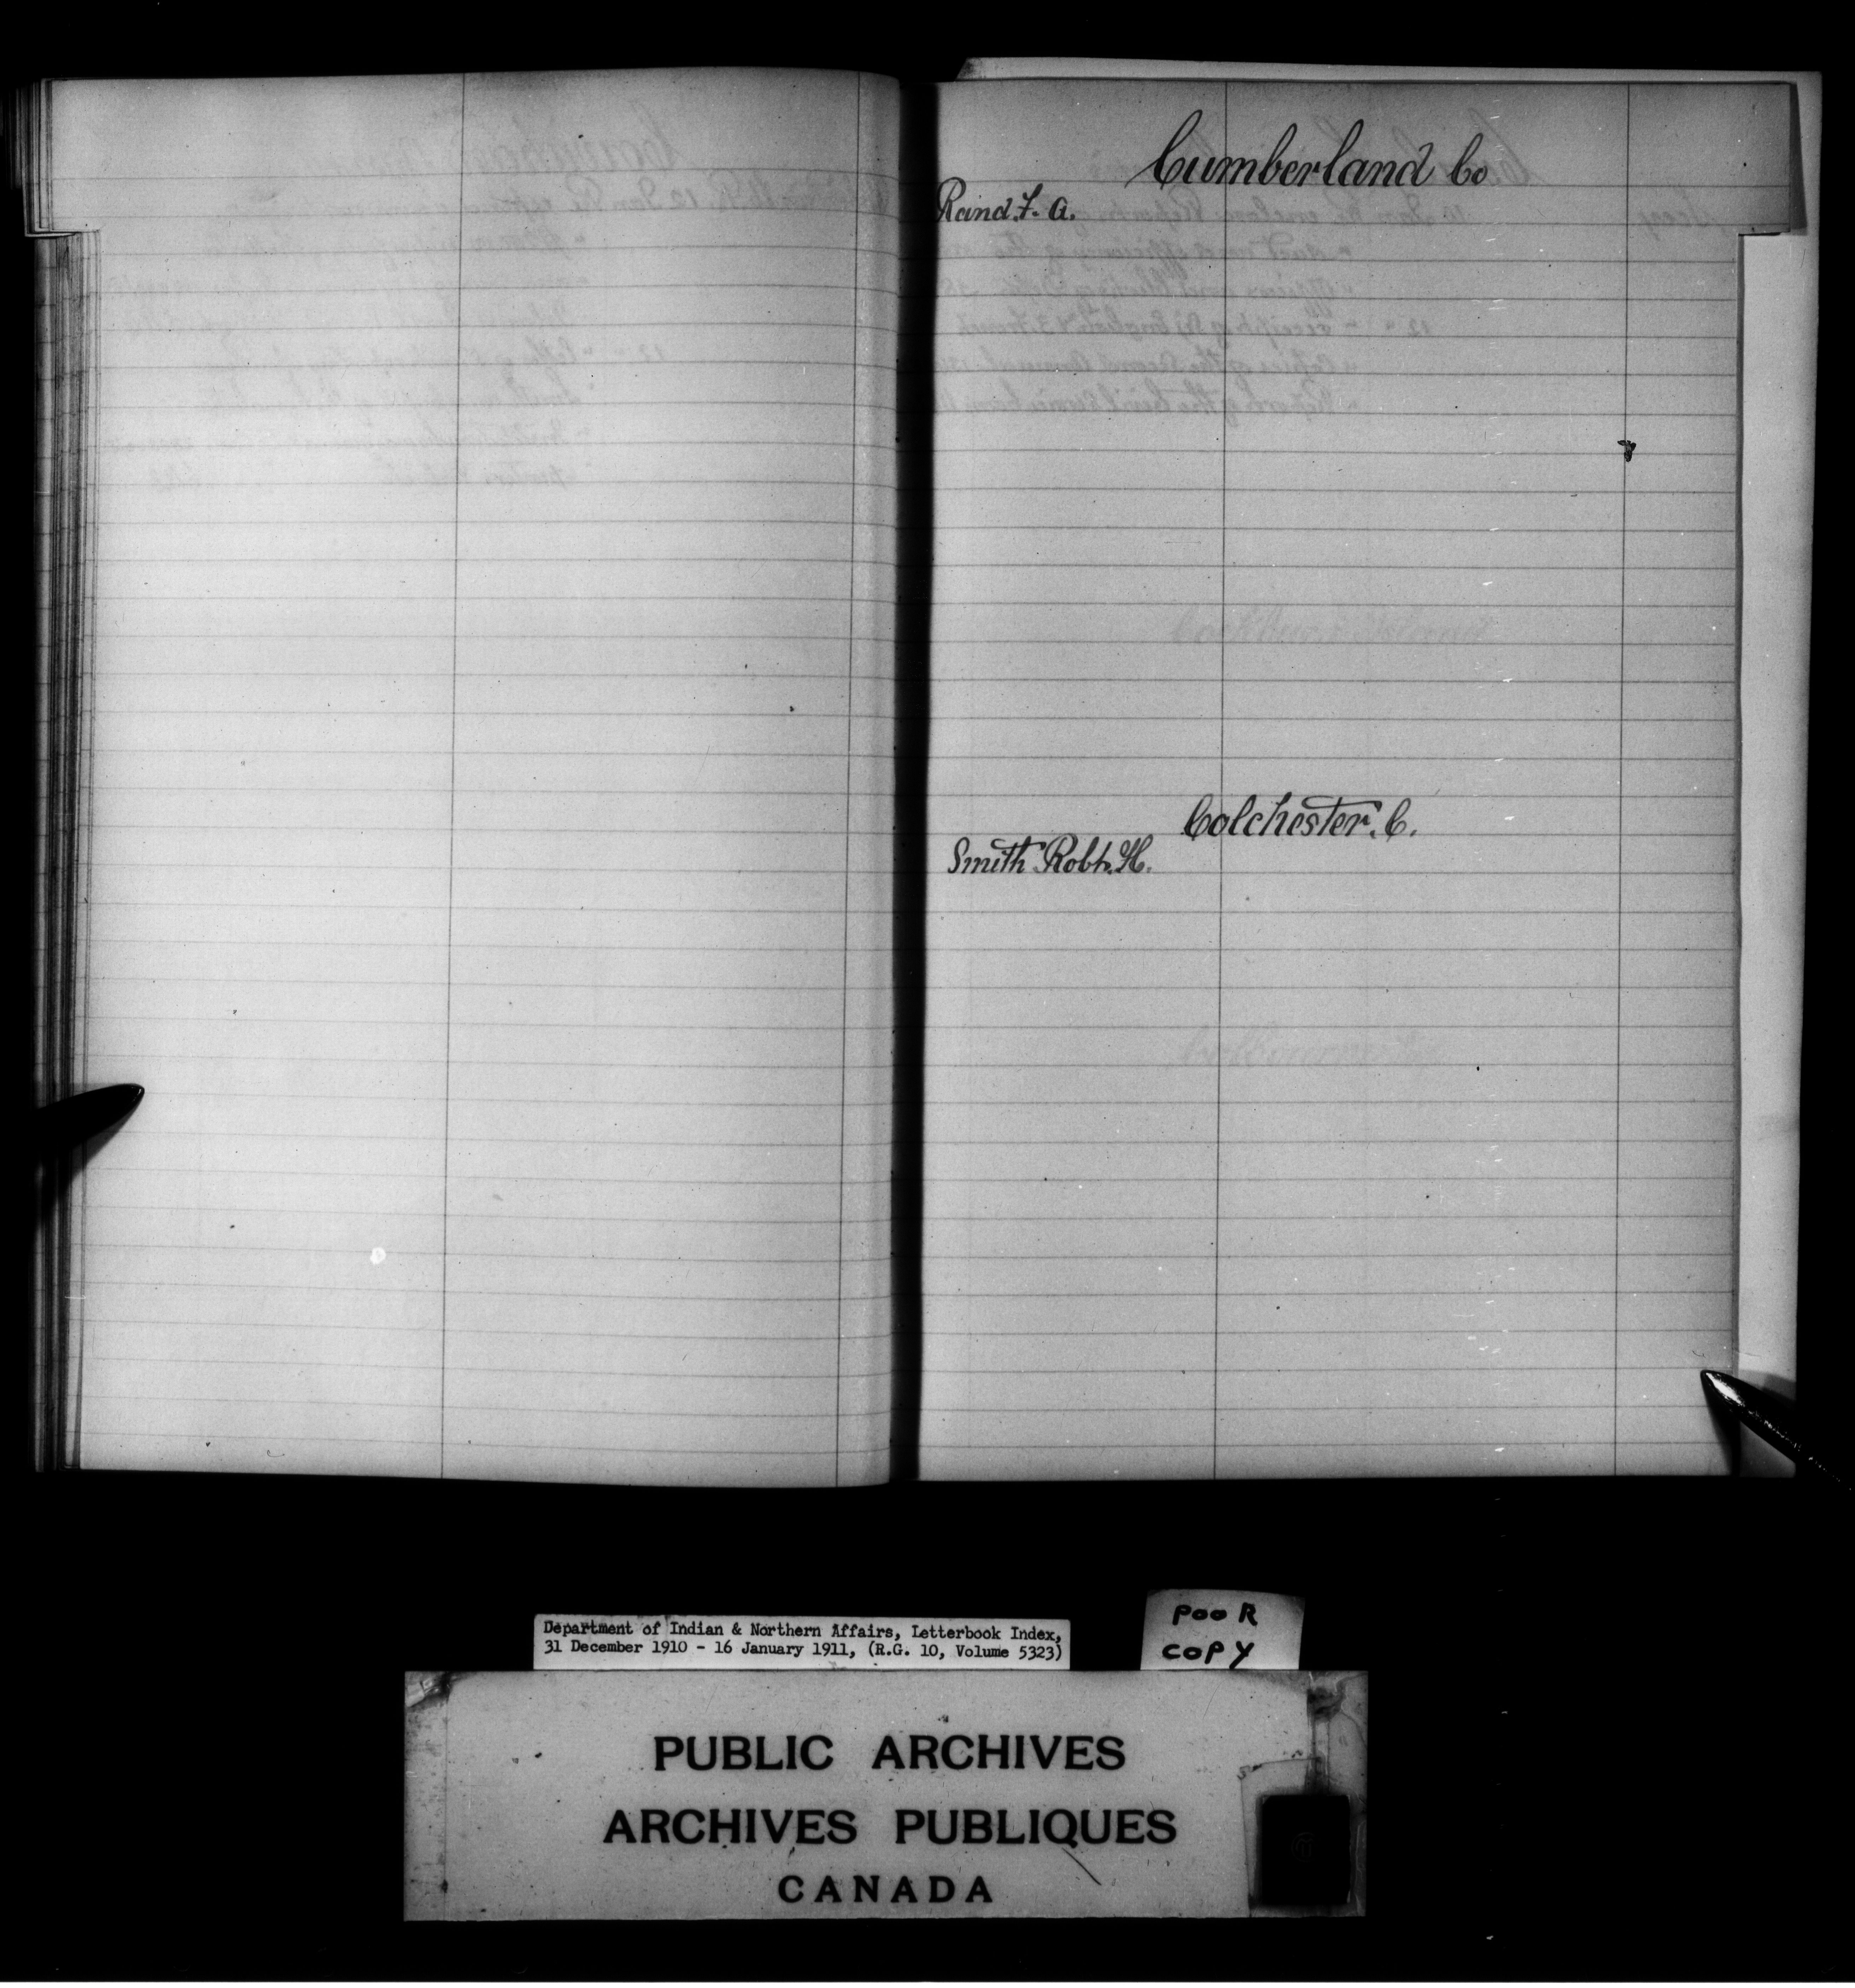 Cumberland Co
Rand. F. A.
Colchester. C.
Smith Robt. H.
Department of Indian & Northern Affairs, Letterbook Index,
31 December 1910 - 16 January 1911, (R.G. 10, Volume 5323)
POOR
COPY
PUBLIC ARCHIVES
ARCHIVES PUBLIQUES
CANADA